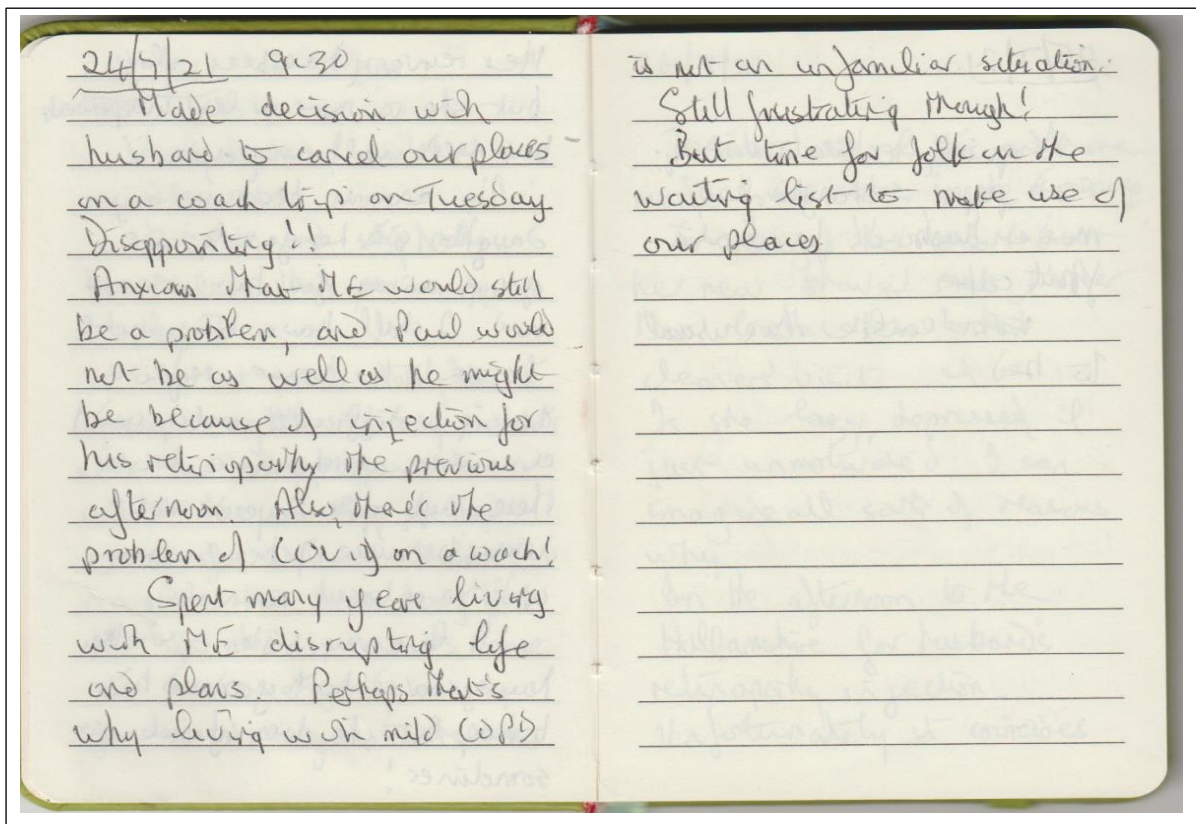 24/1/21 9.30
Made decision with
husband to cancel our places
on a coach trip on Tuesday
Disappointing!!
Anxious that ME would still
be a problem, and Paul would
not be as well as he might
be because of injection for
his retinopathy the previous
afternoon. Also, there's the
problem of COVID on a coach!
Spent many years living
with ME disrupting life
and plans. Perhaps that's
why living with mild COPD
is not an unfamiliar situation.
Still frustrating though!
But time for folk on the
waiting list to make use of
our places